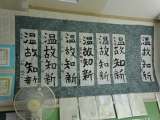 温故知新
温故知新
温故知新
温故知新
温故知新
温故知新